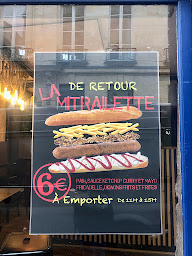 DE RETOUR
LA
MITRAILETTE
6€
PAIN, SAUCE KETCHUP CURRY ET MAYO
FRICADELLE, OIGNONS FRITS ET FRITES
À Emporter DE 11H À 15H